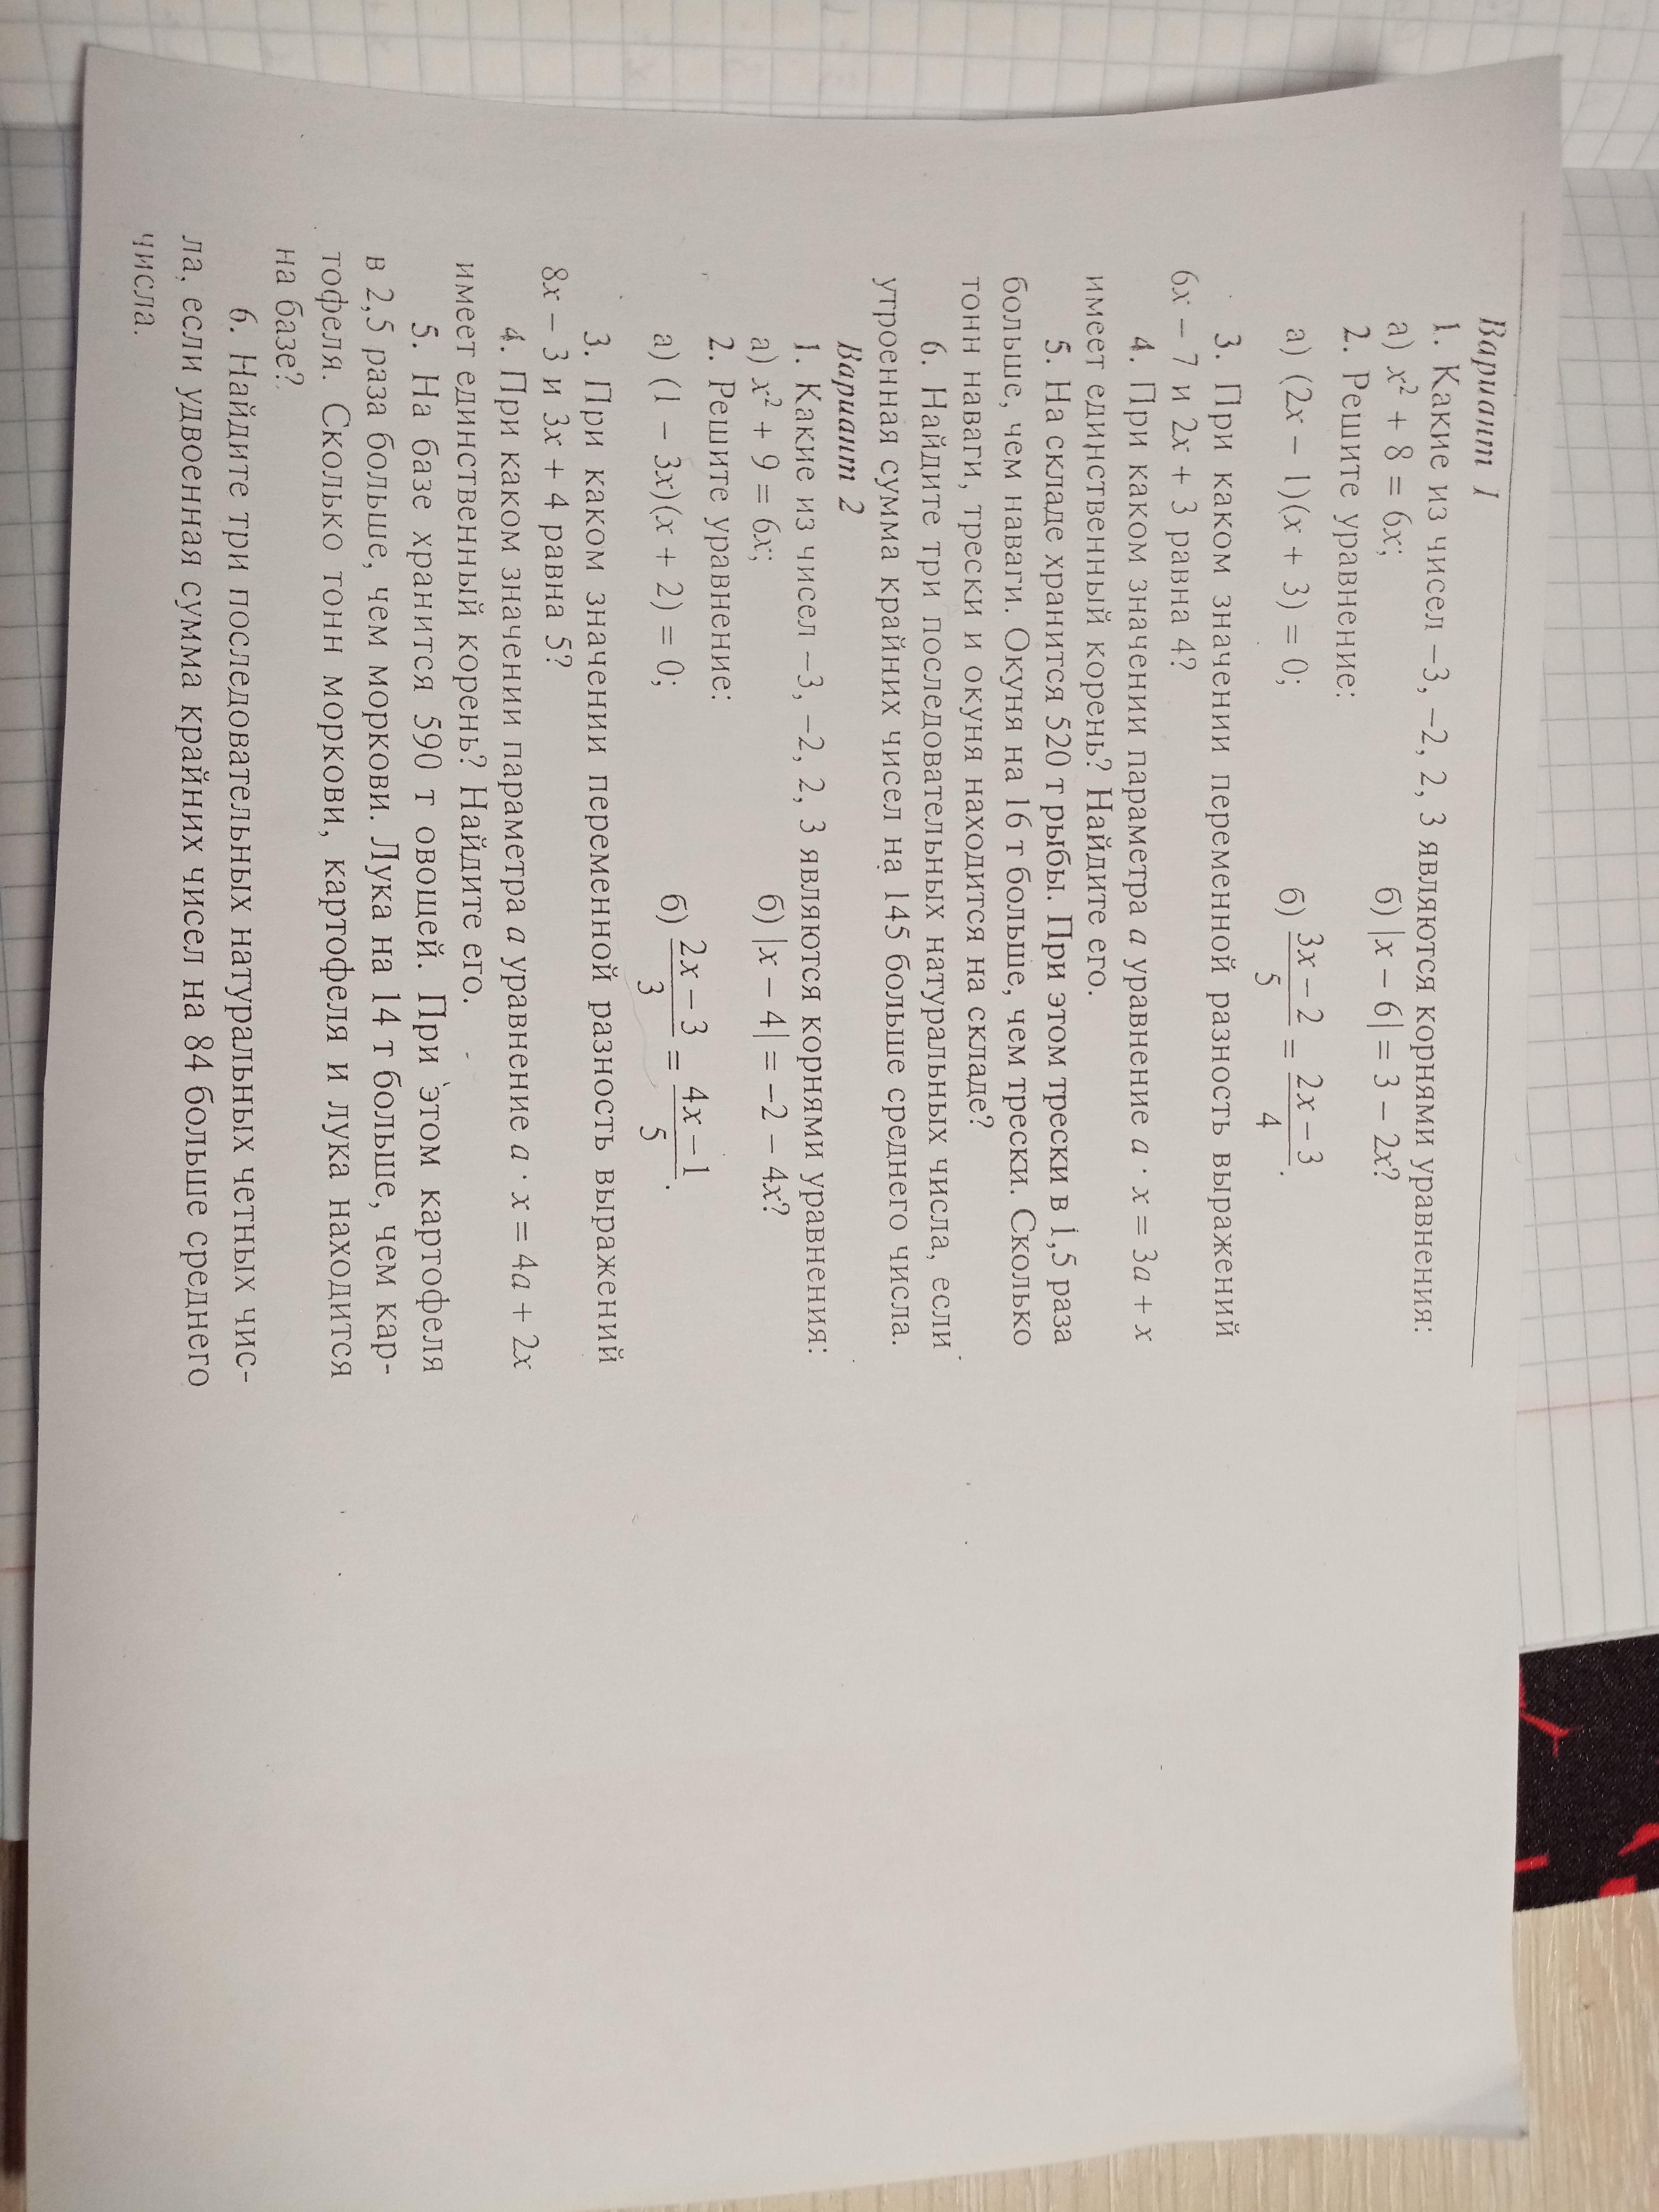 Вариант 1
1. Какие из чисел −3, −2, 2, 3 являются корнями уравнения:
а) x² + 8 = 6x; б) |x − 6| = 3 − 2x?
2. Решите уравнение:
а) (2x − 1)(x + 3) = 0; б) (3x − 2)/5 = (2x − 3)/4.
3. При каком значении переменной разность выражений
6x − 7 и 2x + 3 равна 4?
4. При каком значении параметра a уравнение a · x = 3a + x
имеет единственный корень? Найдите его.
5. На складе хранится 520 т рыбы. При этом трески в 1,5 раза
больше, чем наваги. Окуня на 16 т больше, чем трески. Сколько
тонн наваги, трески и окуня находится на складе?
6. Найдите три последовательных натуральных числа, если
утроенная сумма крайних чисел на 145 больше среднего числа.
Вариант 2
1. Какие из чисел −3, −2, 2, 3 являются корнями уравнения:
а) x² + 9 = 6x; б) |x − 4| = −2 − 4x?
2. Решите уравнение:
а) (1 − 3x)(x + 2) = 0; б) (2x − 3)/3 = (4x − 1)/5.
3. При каком значении переменной разность выражений
8x − 3 и 3x + 4 равна 5?
4. При каком значении параметра a уравнение a · x = 4a + 2x
имеет единственный корень? Найдите его.
5. На базе хранится 590 т овощей. При этом картофеля
в 2,5 раза больше, чем моркови. Лука на 14 т больше, чем кар-
тофеля. Сколько тонн моркови, картофеля и лука находится
на базе?
6. Найдите три последовательных натуральных четных чис-
ла, если удвоенная сумма крайних чисел на 84 больше среднего
числа.